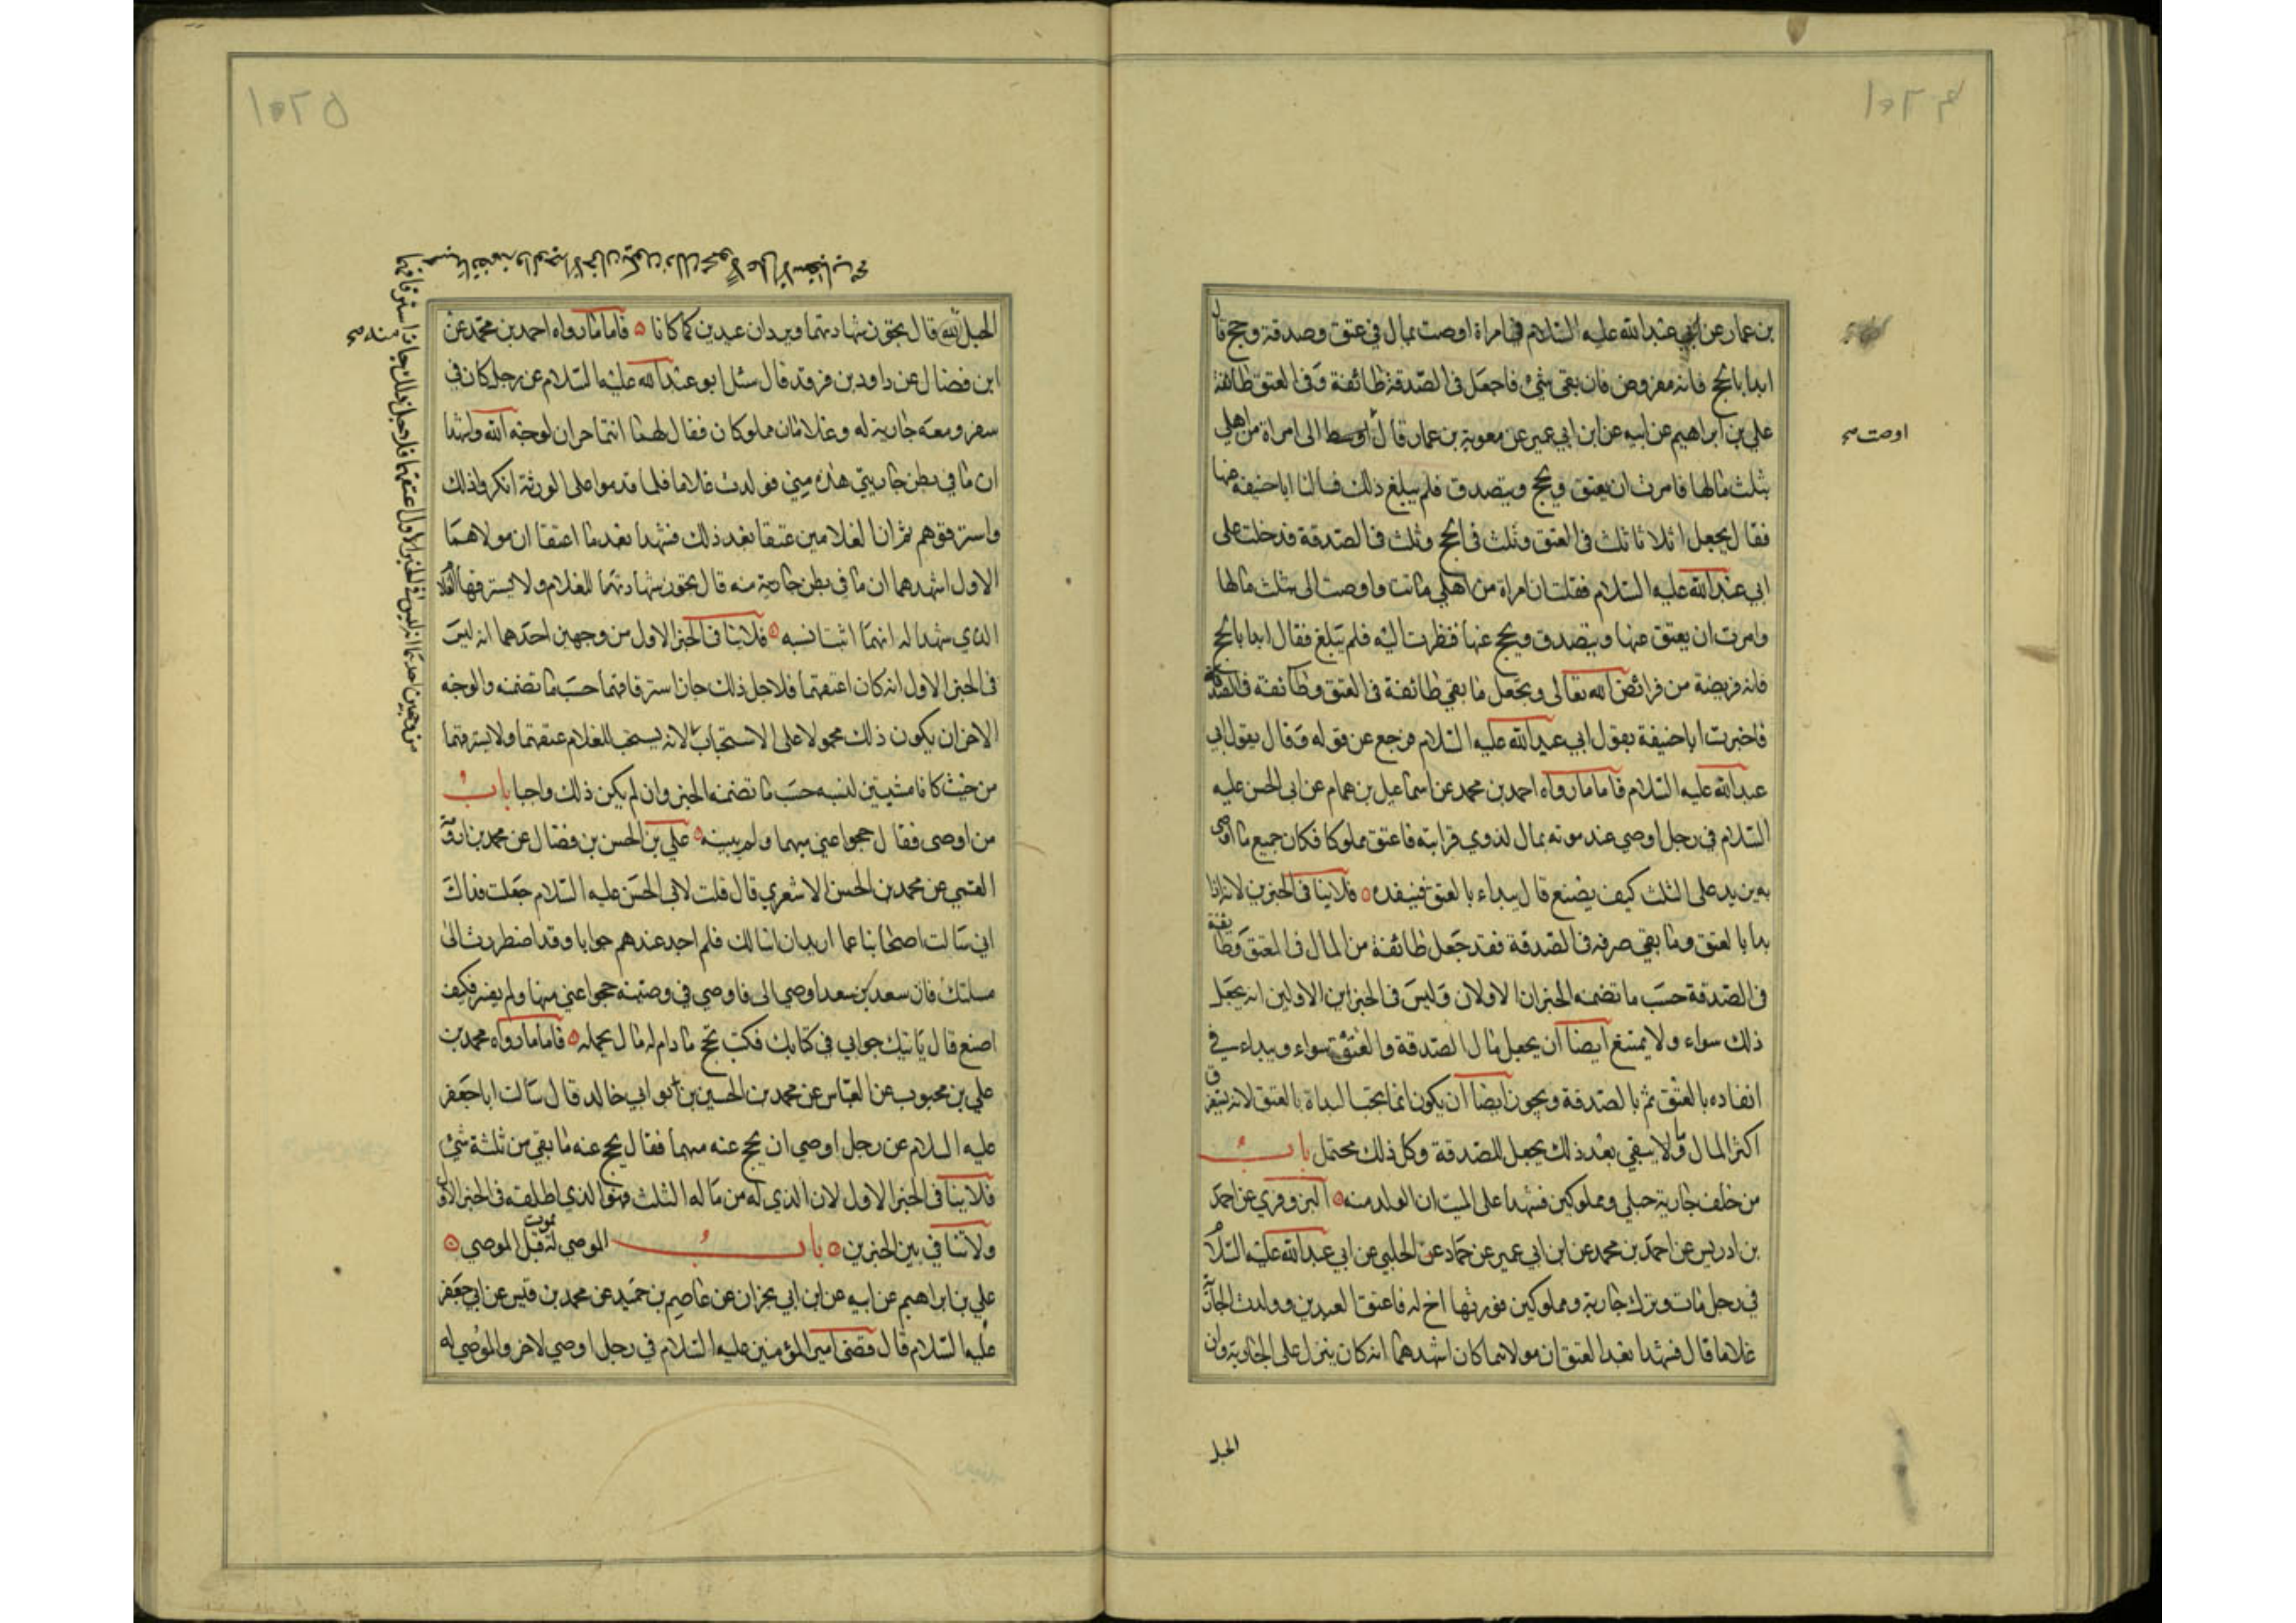 ١٠٢٤
بن عمار عن ابي عبد الله عليه السلام في امراة اوصت بمال في عتق وصدقة وحج قال
ابدا بالحج فانه مفروض فان بقي شيء فاجعل في الصدقة طائفة وفي العتق طائفة
علي بن ابراهيم عن ابيه عن ابن ابي عمير عن معوية بن عمار قال اوصت الى امراة من اهلي
اوصت صح
بثلث مالها فامرت ان يعتق ويحج ويتصدق فلم يبلغ ذلك فسالنا ابا حنيفة عنها
فقال يجعل اثلاثا ثلث في العتق وثلث في الحج وثلث في الصدقة فدخلت على
ابي عبد الله عليه السلام فقلت ان امراة من اهلي ماتت واوصت الى بثلث مالها
وامرت ان يعتق عنها ويتصدق ويحج عنها فنظرت اليه فلم يبلغ فقال ابدا بالحج
فانه فريضة من فرائض الله تعالى ويجعل ما بقي طائفة في العتق وطائفة في الصدقة
فاخبرت ابا حنيفة بقول ابي عبد الله عليه السلام فرجع عن قوله وقال بقول ابي
عبد الله عليه السلام فاما ما رواه احمد بن محمد عن اسماعيل بن همام عن ابي الحسن عليه
السلام في رجل اوصي عند موته بمال لذوي قرابته فاعتق مملوكا فكان جميع ما اوصى
به يزيد على الثلث كيف يصنع قال يبداء بالعتق فينفده ٥ فلا ينافى الخبرين لانه اذا
بدا بالعتق وما بقي صرفه في الصدقة فقد جعل طائفة من المال في العتق وطائفة
في الصدقة حسب ما تضمنه الخبران الاولان وليس في الخبرين الاولين انه يجعل
ذلك سواء ولا يمتنع ايضا ان يجعل مال الصدقة والعتق سواء ويبداء في
انفاده بالعتق ثم بالصدقة ويجوز ايضا ان يكون انما يجب البداة بالعتق لانه يستغرق
اكثر المال ولا يبقي بعد ذلك يجعل للصدقة وكل ذلك محتمل باب
من خلف جارية حبلي ومملوكين فشهدا على الميت ان الولد منه ٥ البزوفري عن احمد
بن ادريس عن احمد بن محمد عن ابن ابي عمير عن حماد عن الحلبي عن ابي عبد الله عليه السلام
في رجل مات وترك جارية ومملوكين فورثها اخ له فاعتق العبدين وولدت الجارية
غلاما قال فشهدا بعد العتق ان مولاهما كان اشهدهما انه كان ينزل على الجارية وان
الحبل
١٠٢٥
الحبل منه قال يجوز شهادتهما ويردان عبدين كما كانا ٥ فاما ما رواه احمد بن محمد عن
ابن فضال عن داود بن فرقد قال سئل ابو عبد الله عليه السلام عن رجل كان في
سفر ومعه جارية له وغلامان مملوكان فقال لهما انتما حران لوجه الله واشهدا
ان ما في بطن جاريتي هذه مني فولدت غلاما فلما قدموا على الورثة انكروا ذلك
واسترقوهم ثم ان الغلامين عتقا بعد ذلك فشهدا بعد ما اعتقا ان مولاهما
الاول اشهدهما ان ما في بطن جاريته منه قال يجوز شهادتهما للغلام ولا يسترقهما الغلام
الذي شهدا له انهما اثبتا نسبه ٥ فلا ينافى الخبر الاول من وجهين احدهما انه ليس
في الخبر الاول انه كان اعتقهما فلاجل ذلك جاز استرقاقهما حسب ما تضمنه والوجه
الاخر ان يكون ذلك محمولا على الاستحباب لانه يستحب للغلام عتقهما ولا يسترقهما
من حيث كانا مثبتين لنسبه حسب ما تضمنه الخبر وان لم يكن ذلك واجبا باب
من اوصى فقال حجوا عني مبهما ولم يبينه ٥ علي بن الحسن بن فضال عن محمد بن اورمة
القمي عن محمد بن الحسن الاشعري قال قلت لابي الحسن عليه السلام جعلت فداك
اني سالت اصحابنا عما اريد ان اسالك فلم اجد عندهم جوابا وقد اضطررت الى
مسلتك فان سعد بن سعد اوصي الى فاوصي في وصيته حجوا عني مبهما ولم يفسر فكيف
اصنع قال ياتيك جوابي في كتابك فكتب تحج ما دام له مال يحمله ٥ فاما ما رواه محمد بن
علي بن محبوب عن العباس عن محمد بن الحسين بن ابو ابي خالد قال سالت ابا جعفر
عليه السلام عن رجل اوصي ان يحج عنه مبهما فقال يحج عنه ما بقي من ثلثة شيء
فلا ينافى الخبر الاول لان الذي له من ماله الثلث فهو الذي اطلقه في الخبر الاول
ولا تنافي بين الخبرين ٥ باب الموصي له يموت قبل الموصي ٥
علي بن ابراهيم عن ابيه عن ابن ابي نجران عن عاصم بن حميد عن محمد بن قيس عن ابي جعفر
عليه السلام قال قضى امير المؤمنين عليه السلام في رجل اوصي لاخر والموصي له
من وجهين احدهما انه ليس في الخبر الاول اعتقهما فلاجل ذلك جاز استرقاقهما